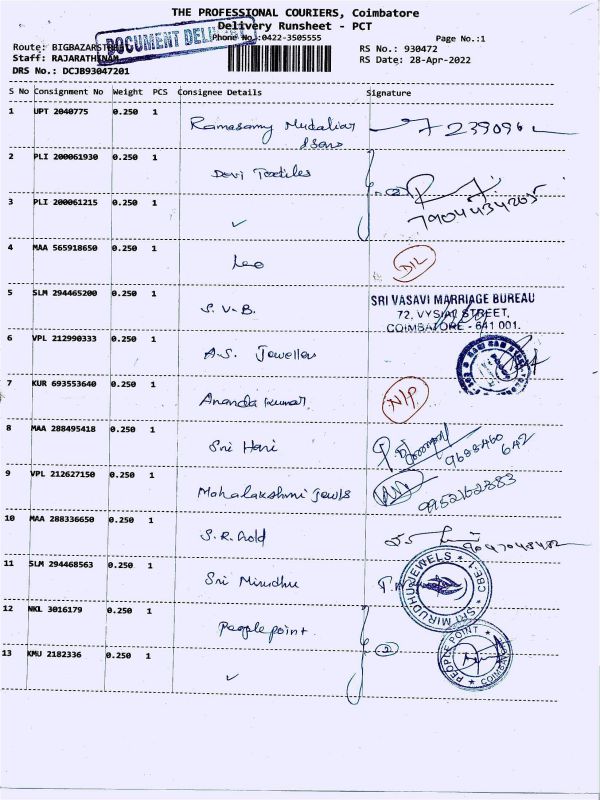 THE PROFESSIONAL COURIERS, Coimbatore
Delivery Runsheet - PCT
DOCUMENT
Phone No.:0422-3505555
Page No.:1
Route: BIGBAZARST
RS No.: 930472
Staff: RAJARATHINAM
RS Date: 28-Apr-2022
DRS No.: DCJB93047201
S No Consignment No Weight PCS Consignee Details Signature
1 UPT 2040775 0.250 1 Ramasamy Mudaliar 239096
& Sons
2 PLI 200061930 0.250 1 Devi Textiles 2
3 PLI 200061215 0.250 1 ✓ 7904434205
4 MAA 565918650 0.250 1 Leo D/L
5 SLM 294465200 0.250 1 S.V.B. SRI VASAVI MARRIAGE BUREAU
72, VYSIAL STREET,
COIMBATORE - 641 001.
6 VPL 212990333 0.250 1 A.S. Jewellers
7 KUR 693553640 0.250 1 Ananda Kumar N/P
8 MAA 288495418 0.250 1 Sri Hari
9 VPL 212627150 0.250 1 Mahalakshmi Jewls 9952162383
10 MAA 288336650 0.250 1 S.R. Gold 9047048482
11 SLM 294468563 0.250 1 Sri Mirudhu SRI MIRUDHU JEWELS ★ CBE-1
12 NKL 3016179 0.250 1 People point 2
13 KMU 2182336 0.250 1 ✓ PEOPLE POINT